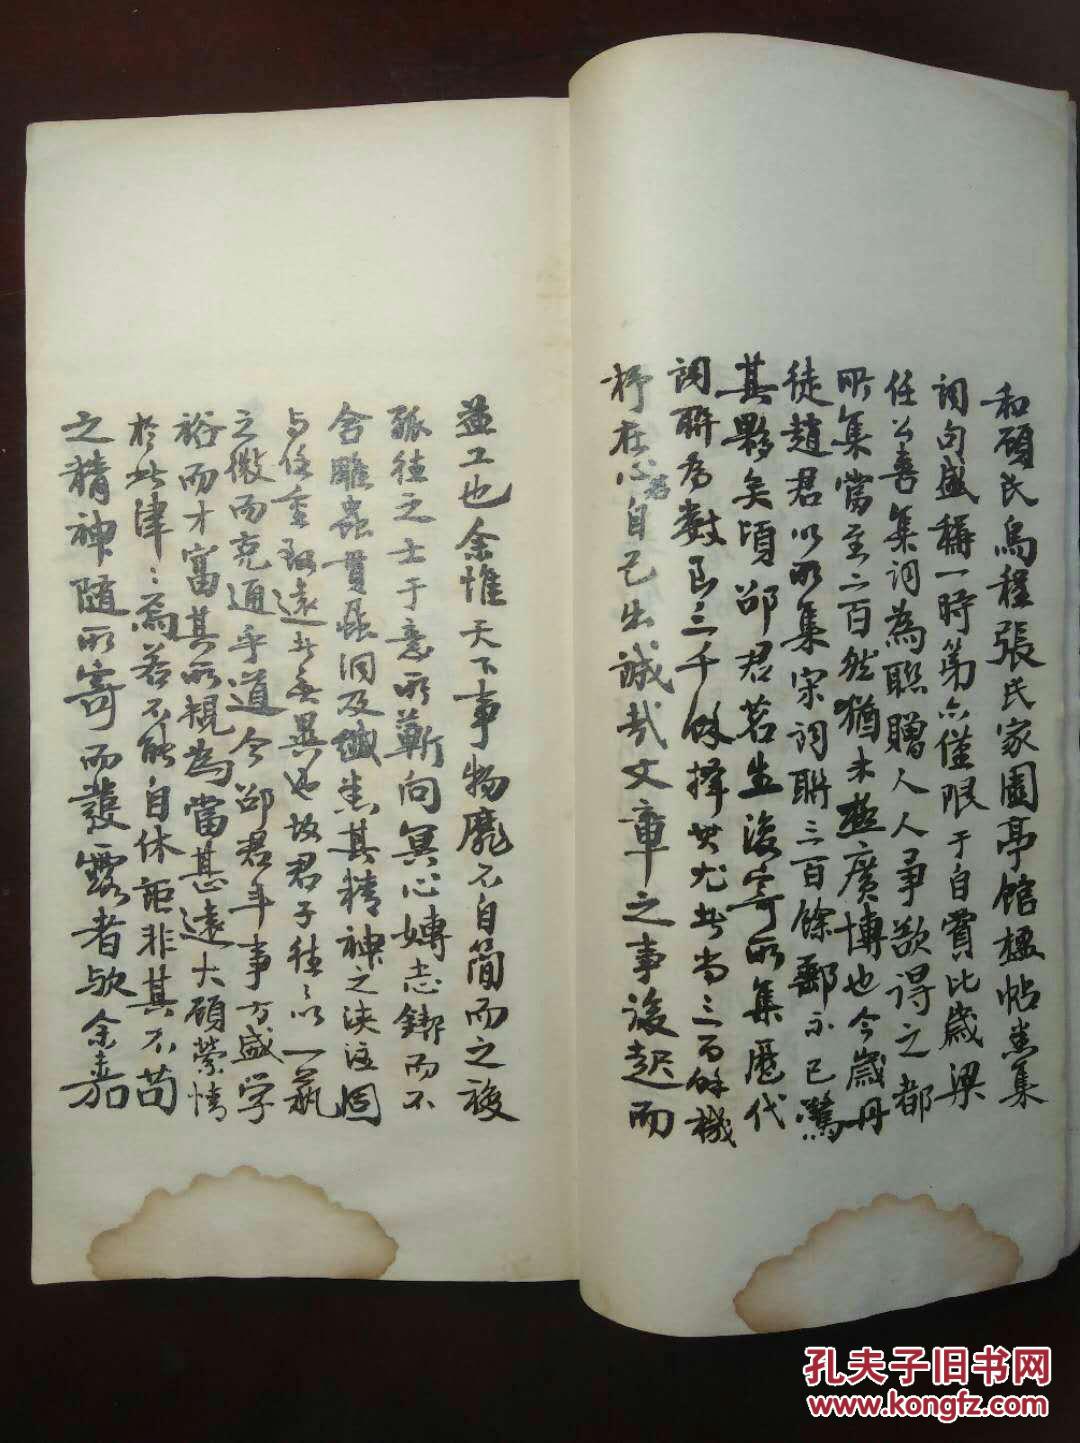 和碩氏烏程張氏家園亭館楹帖悉集
詞句盛稱一時第亦僅限于自賞比歲梁
任公喜集詞為聯贈人人爭欲得之都
所集當至二百然猶未極廣博也今歲丹
徒趙君以所集宋詞聯三百餘郵示已驚
其夥矣頃邵君茗生復寄所集歷代
詞聯為數已三千餘擇其尤者尚三百餘機
杼在心若自己出誠哉文章之事後起而
益工也余惟天下事物靡不自簡而之複
孤往之士于意所蘄向冥心専志鍥而不
舍雕蟲貫虱洞及纖悉其精神之浹洽周
与任重致遠者無異也故君子往往以一藝
之微而克通乎道今邵君年事方盛学
裕而才富其所規為當甚遠大顧縈情
於此津津焉若不能自休詎非其不苟
之精神隨所寄而發露者歟余嘉
孔夫子旧书网
www.kongfz.com